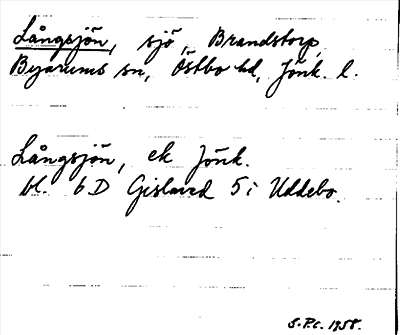 Långsjön, sjö, Brandstorp,
Byarums sn, Östbo hd, Jönk. l.
Långsjön, ek Jönk.
bl. 6D Gislaved 5i Uddebo.
S.P.C. 1958.